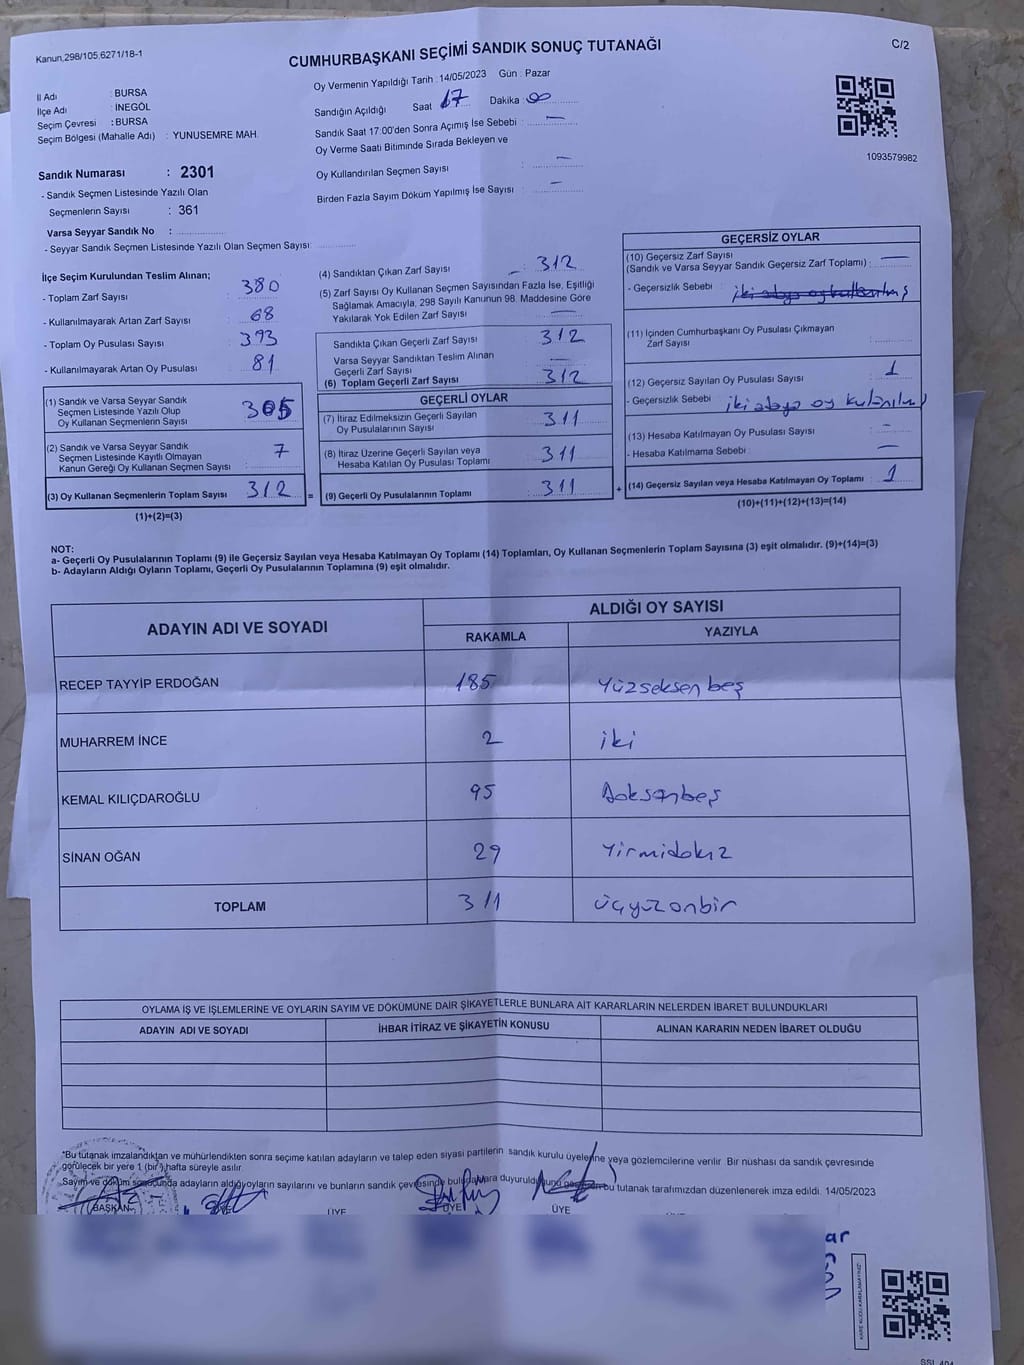 Kanun,298/105,6271/18-1
CUMHURBAŞKANI SEÇİMİ SANDIK SONUÇ TUTANAĞI
C/2
İl Adı : BURSA
İlçe Adı : İNEGÖL
Seçim Çevresi : BURSA
Seçim Bölgesi (Mahalle Adı) : YUNUSEMRE MAH.
Sandık Numarası : 2301
- Sandık Seçmen Listesinde Yazılı Olan
Seçmenlerin Sayısı : 361
Varsa Seyyar Sandık No :
- Seyyar Sandık Seçmen Listesinde Yazılı Olan Seçmen Sayısı:
Oy Vermenin Yapıldığı Tarih : 14/05/2023 Gün : Pazar
Sandığın Açıldığı Saat 17 Dakika : 00
Sandık Saat 17:00'den Sonra Açımış İse Sebebi : —
Oy Verme Saati Bitiminde Sırada Bekleyen ve
Oy Kullandırılan Seçmen Sayısı : —
Birden Fazla Sayım Döküm Yapılmış İse Sayısı : —
1093579982
İlçe Seçim Kurulundan Teslim Alınan;
- Toplam Zarf Sayısı : 380
- Kullanılmayarak Artan Zarf Sayısı : 68
- Toplam Oy Pusulası Sayısı : 393
- Kullanılmayarak Artan Oy Pusulası : 81
(1) Sandık ve Varsa Seyyar Sandık
Seçmen Listesinde Yazılı Olup
Oy Kullanan Seçmenlerin Sayısı : 305
(2) Sandık ve Varsa Seyyar Sandık
Seçmen Listesinde Kayıtlı Olmayan
Kanun Gereği Oy Kullanan Seçmen Sayısı : 7
(3) Oy Kullanan Seçmenlerin Toplam Sayısı : 312 =
(1)+(2)=(3)
(4) Sandıktan Çıkan Zarf Sayısı : 312
(5) Zarf Sayısı Oy Kullanan Seçmen Sayısından Fazla İse, Eşitliği
Sağlamak Amacıyla, 298 Sayılı Kanunun 98. Maddesine Göre
Yakılarak Yok Edilen Zarf Sayısı : —
Sandıkta Çıkan Geçerli Zarf Sayısı : 312
Varsa Seyyar Sandıktan Teslim Alınan
Geçerli Zarf Sayısı : —
(6) Toplam Geçerli Zarf Sayısı : 312
GEÇERLİ OYLAR
(7) İtiraz Edilmeksizin Geçerli Sayılan
Oy Pusulalarının Sayısı : 311
(8) İtiraz Üzerine Geçerli Sayılan veya
Hesaba Katılan Oy Pusulası Toplamı : 311
(9) Geçerli Oy Pusulalarının Toplamı : 311 +
GEÇERSİZ OYLAR
(10) Geçersiz Zarf Sayısı
(Sandık ve Varsa Seyyar Sandık Geçersiz Zarf Toplamı) : —
- Geçersizlik Sebebi :
(11) İçinden Cumhurbaşkanı Oy Pusulası Çıkmayan
Zarf Sayısı :
(12) Geçersiz Sayılan Oy Pusulası Sayısı : 1
- Geçersizlik Sebebi : iki adaya oy
(13) Hesaba Katılmayan Oy Pusulası Sayısı : —
- Hesaba Katılmama Sebebi : —
(14) Geçersiz Sayılan veya Hesaba Katılmayan Oy Toplamı : 1
(10)+(11)+(12)+(13)=(14)
NOT:
a- Geçerli Oy Pusulalarının Toplamı (9) ile Geçersiz Sayılan veya Hesaba Katılmayan Oy Toplamı (14) Toplamları, Oy Kullanan Seçmenlerin Toplam Sayısına (3) eşit olmalıdır. (9)+(14)=(3)
b- Adayların Aldığı Oyların Toplamı, Geçerli Oy Pusulalarının Toplamına (9) eşit olmalıdır.
ADAYIN ADI VE SOYADI ALDIĞI OY SAYISI
RAKAMLA YAZIYLA
RECEP TAYYİP ERDOĞAN 185 Yüzseksenbeş
MUHARREM İNCE 2 iki
KEMAL KILIÇDAROĞLU 95 Doksanbeş
SİNAN OĞAN 29 Yirmidokuz
TOPLAM 311 üçyüzonbir
OYLAMA İŞ VE İŞLEMLERİNE VE OYLARIN SAYIM VE DÖKÜMÜNE DAİR ŞİKAYETLERLE BUNLARA AİT KARARLARIN NELERDEN İBARET BULUNDUKLARI
ADAYIN ADI VE SOYADI İHBAR İTİRAZ VE ŞİKAYETİN KONUSU ALINAN KARARIN NEDEN İBARET OLDUĞU
"Bu tutanak imzalandıktan ve mühürlendikten sonra seçime katılan adayların ve talep eden siyasi partilerin sandık kurulu üyelerine veya gözlemcilerine verilir. Bir nüshası da sandık çevresinde
görülecek bir yere 1 (bir) hafta süreyle asılır.
Sayım ve döküm sonucunda adayların aldığı oyların sayılarını ve bunların sandık çevresinde bulunanlara duyurulduğunu gösteren bu tutanak tarafımızdan düzenlenerek imza edildi. 14/05/2023
BAŞKAN ÜYE ÜYE ÜYE